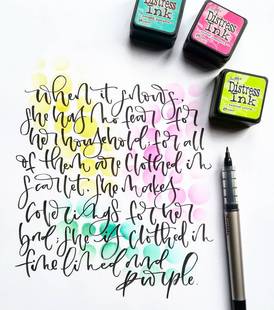 when it snows,
she has no fear for
her household; for all
of them are clothed in
scarlet; she makes
coverings for her
bed; she is clothed in
fine linen and
purple.
Distress
Ink
Distress
Ink
Distress
Ink